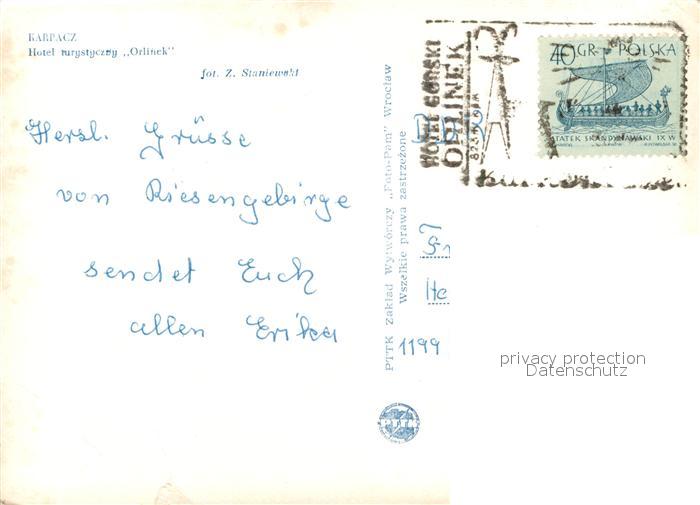 KARPACZ
Hotel turystyczny „Orlinek"
fot. Z. Staniewski
Hersl. Grüsse
von Riesengebirge
sendet Euch
allen Erika
PTTK Zakład Wytwórczy „Foto-Pam" Wrocław
Wszelkie prawa zastrzeżone
PTTK
HOTEL GÓRSKI
ORLINEK
40 GR POLSKA
STATEK SKANDYNAWSKI IX W
DDR
Fr
He
1199
privacy protection
Datenschutz